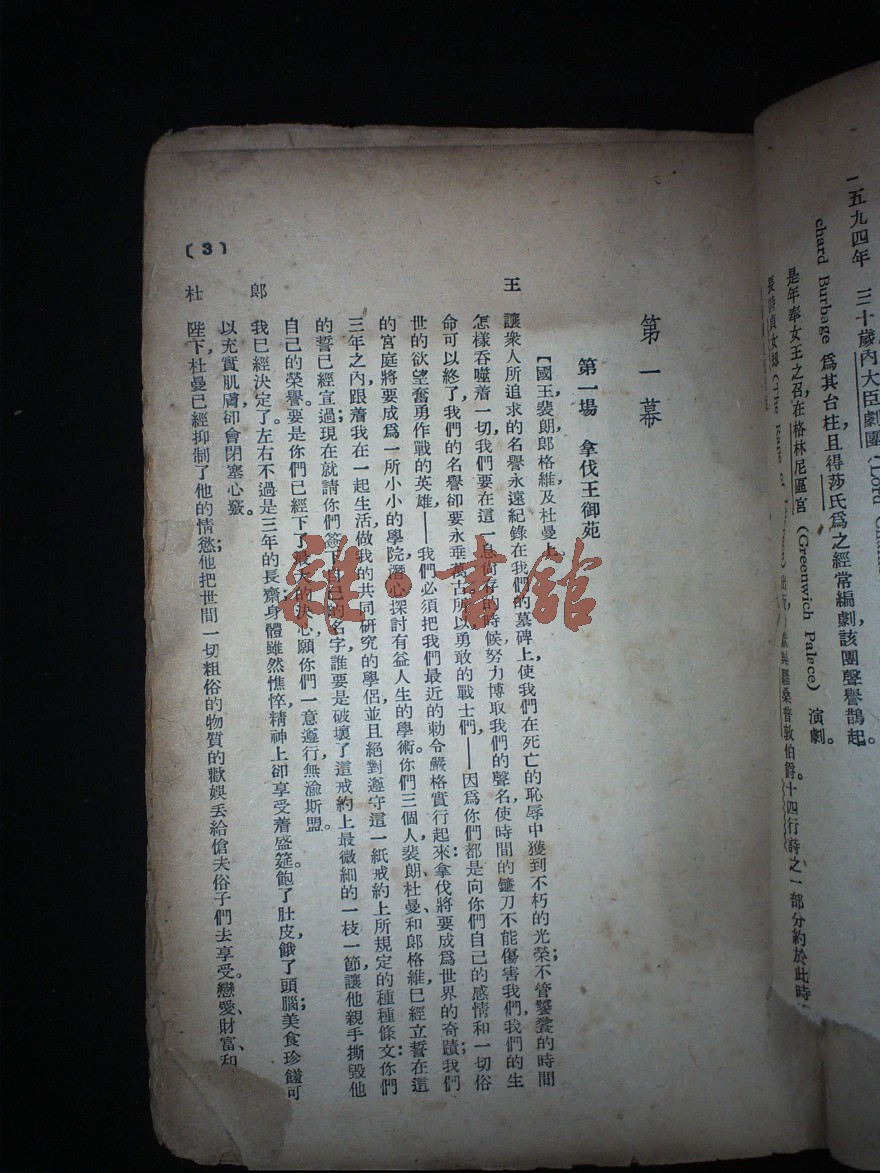 一五九四年 三十歲內大臣劇團(Lord
chard Burbage 爲其台柱且得莎氏爲之經常編劇該團聲譽鵲起。
是年奉女王之召在格林尼區宮(Greenwich Palace)演劇。
伯爵十四行詩之一部分約於此時
第一幕
第一場 拿伐王御苑
【國王裴朗郎格維及杜曼上。
王 讓衆人所追求的名譽永遠紀錄在我們的墓碑上,使我們在死亡的恥辱中獲到不朽的光榮;不管饕餮的時間
怎樣吞噬着一切,我們要在這一息尙存的時候,努力博取我們的聲名,使時間的鐮刀不能傷害我們,我們的生
命可以終了,我們的名譽卻要永垂萬古。所以,勇敢的戰士們——因爲你們都是向你們自己的感情和一切俗
世的欲望奮勇作戰的英雄——我們必須把我們最近的勅令嚴格實行起來:拿伐將要成爲世界的奇蹟;我們
的宮庭將要成爲一所小小的學院,潛心探討有益人生的學術。你們三個人,裴朗、杜曼和郎格維,已經立誓在這
三年之內,跟着我在一起生活,做我的共同研究的學侶,並且絕對遵守這一紙戒約上所規定的種種條文:你們
的誓已經宣過,現在就請你們簽下自己的名字,誰要是破壞了這戒約上最微細的一枝一節,讓他親手撕毀他
自己的榮譽。要是你們已經下了最大的決心,願你們一意遵行,無渝斯盟。
郎 我已經決定了。左右不過是三年的長齋;身體雖然憔悴,精神上卻享受着盛筵。飽了肚皮,餓了頭腦;美食珍饈可
以充實肌膚,卻會閉塞心竅。
杜 陛下,杜曼已經抑制了他的情慾;他把世間一切粗俗的物質的歡娛丢給傖夫俗子們去享受。戀愛、財富、和
(3)
雜·書館